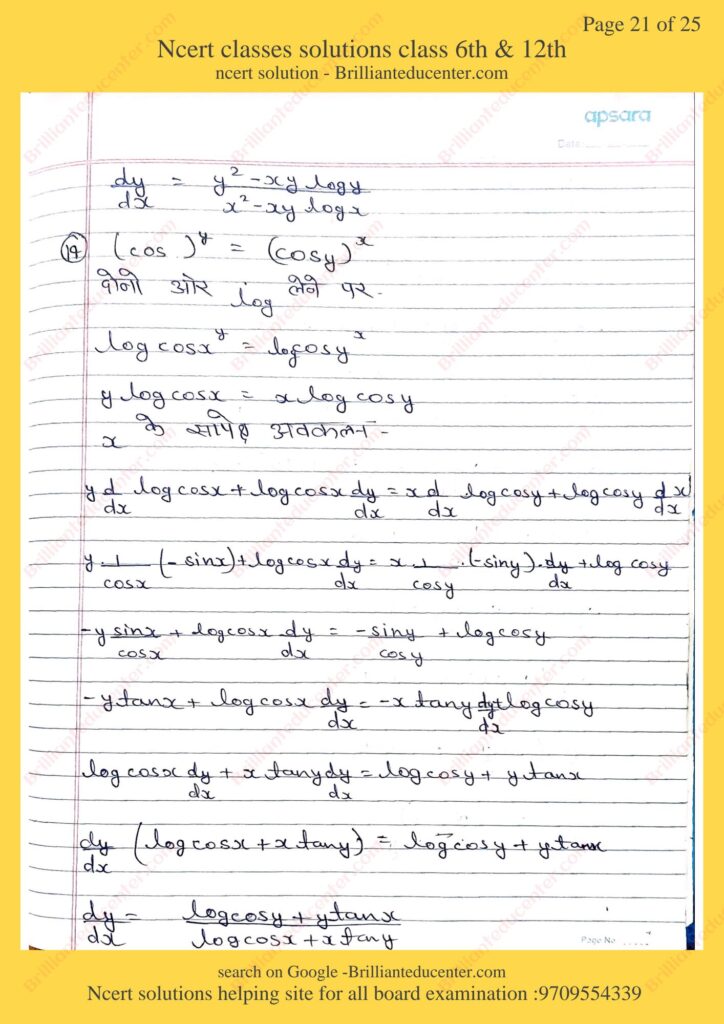 Page 21 of 25
Ncert classes solutions class 6th & 12th
ncert solution - Brillianteducenter.com
apsara
Date
dy/dx = y² - xy log y / x² - xy log x
(14) (cos )^y = (cosy)^x
दोनो ओर log लेने पर-
log cosx^y = logcosy^x
y log cosx = x log cosy
x के सापेक्ष अवकलन-
y d/dx log cosx + log cosx dy/dx = x d/dx log cosy + log cosy dx/dx
y 1/cosx (-sinx) + log cosx dy/dx = x 1/cosy .(-siny).dy/dx + log cosy
-y sinx/cosx + log cosx dy/dx = -siny/cosy + log cosy
-y tanx + log cosx dy/dx = -x tany dy/dx + log cosy
log cosx dy/dx + x tany dy/dx = log cosy + y tanx
dy/dx (log cosx + x tany) = log cosy + y tanx
dy/dx = log cosy + y tanx / log cosx + x tany
Page No
search on Google -Brillianteducenter.com
Ncert solutions helping site for all board examination :9709554339